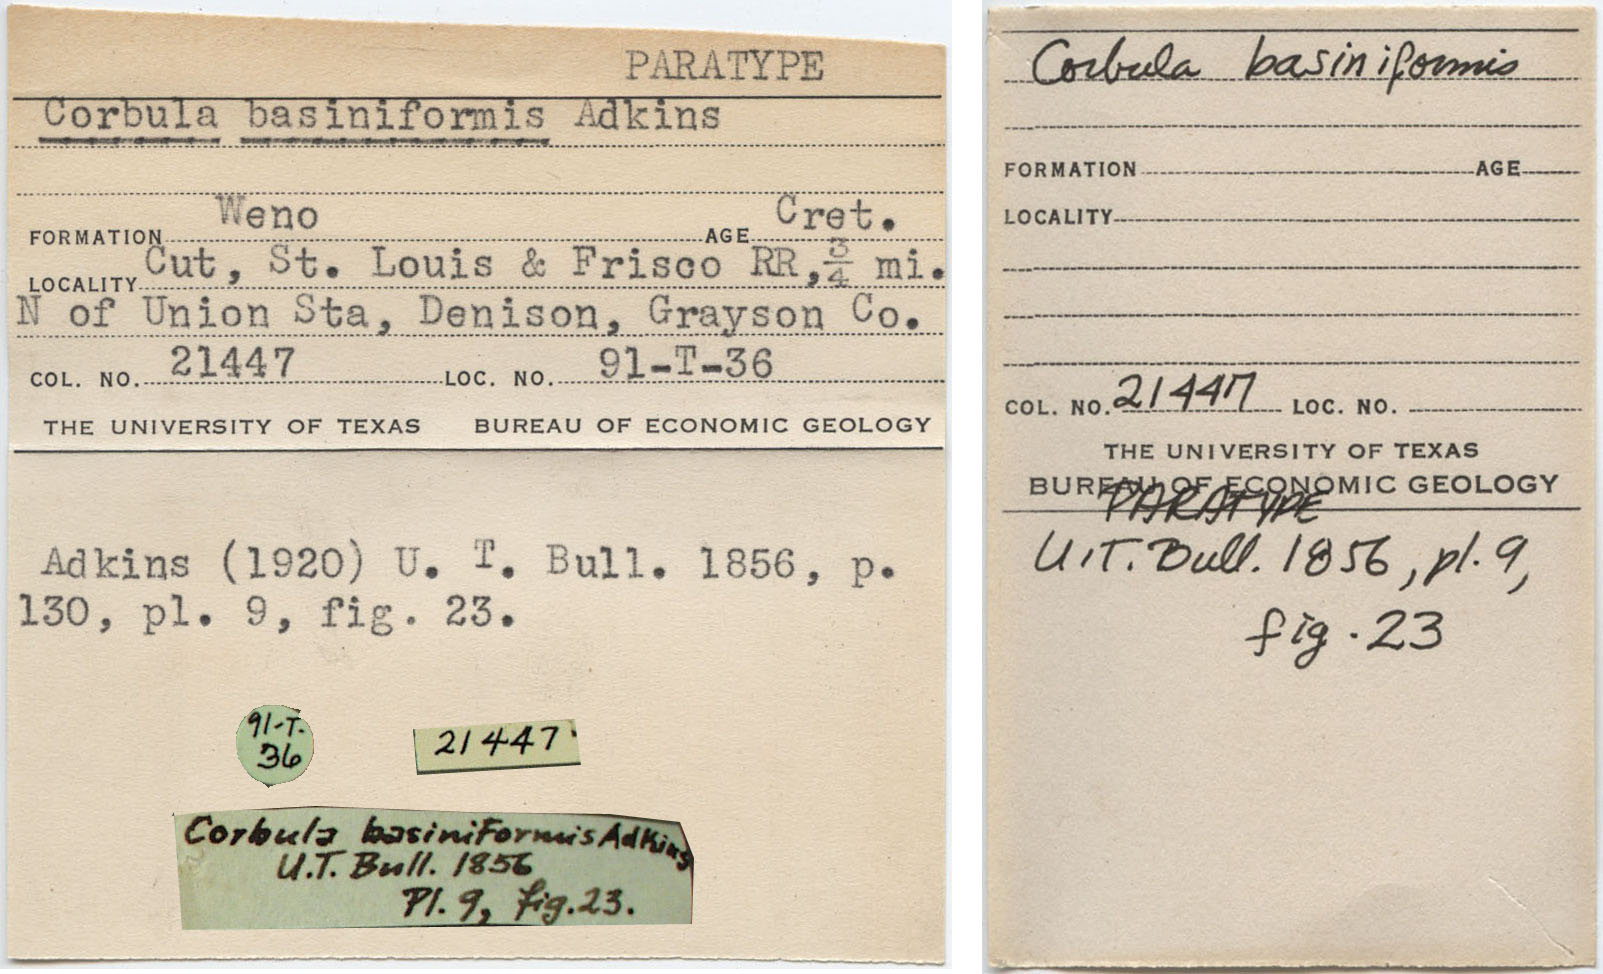 PARATYPE
Corbula basiniformis Adkins
FORMATION Weno AGE Cret.
LOCALITY Cut, St. Louis & Frisco RR, 3/4 mi.
N of Union Sta, Denison, Grayson Co.
COL. NO. 21447 LOC. NO. 91-T-36
THE UNIVERSITY OF TEXAS BUREAU OF ECONOMIC GEOLOGY
Adkins (1920) U. T. Bull. 1856, p.
130, pl. 9, fig. 23.
91-T-
36
21447
Corbula basiniformis Adkins
U.T. Bull. 1856
Pl. 9, fig. 23.
Corbula basiniformis
FORMATION AGE
LOCALITY
COL. NO. 21447 LOC. NO.
THE UNIVERSITY OF TEXAS
BUREAU OF ECONOMIC GEOLOGY
PARATYPE
U.T. Bull. 1856, pl. 9,
fig. 23